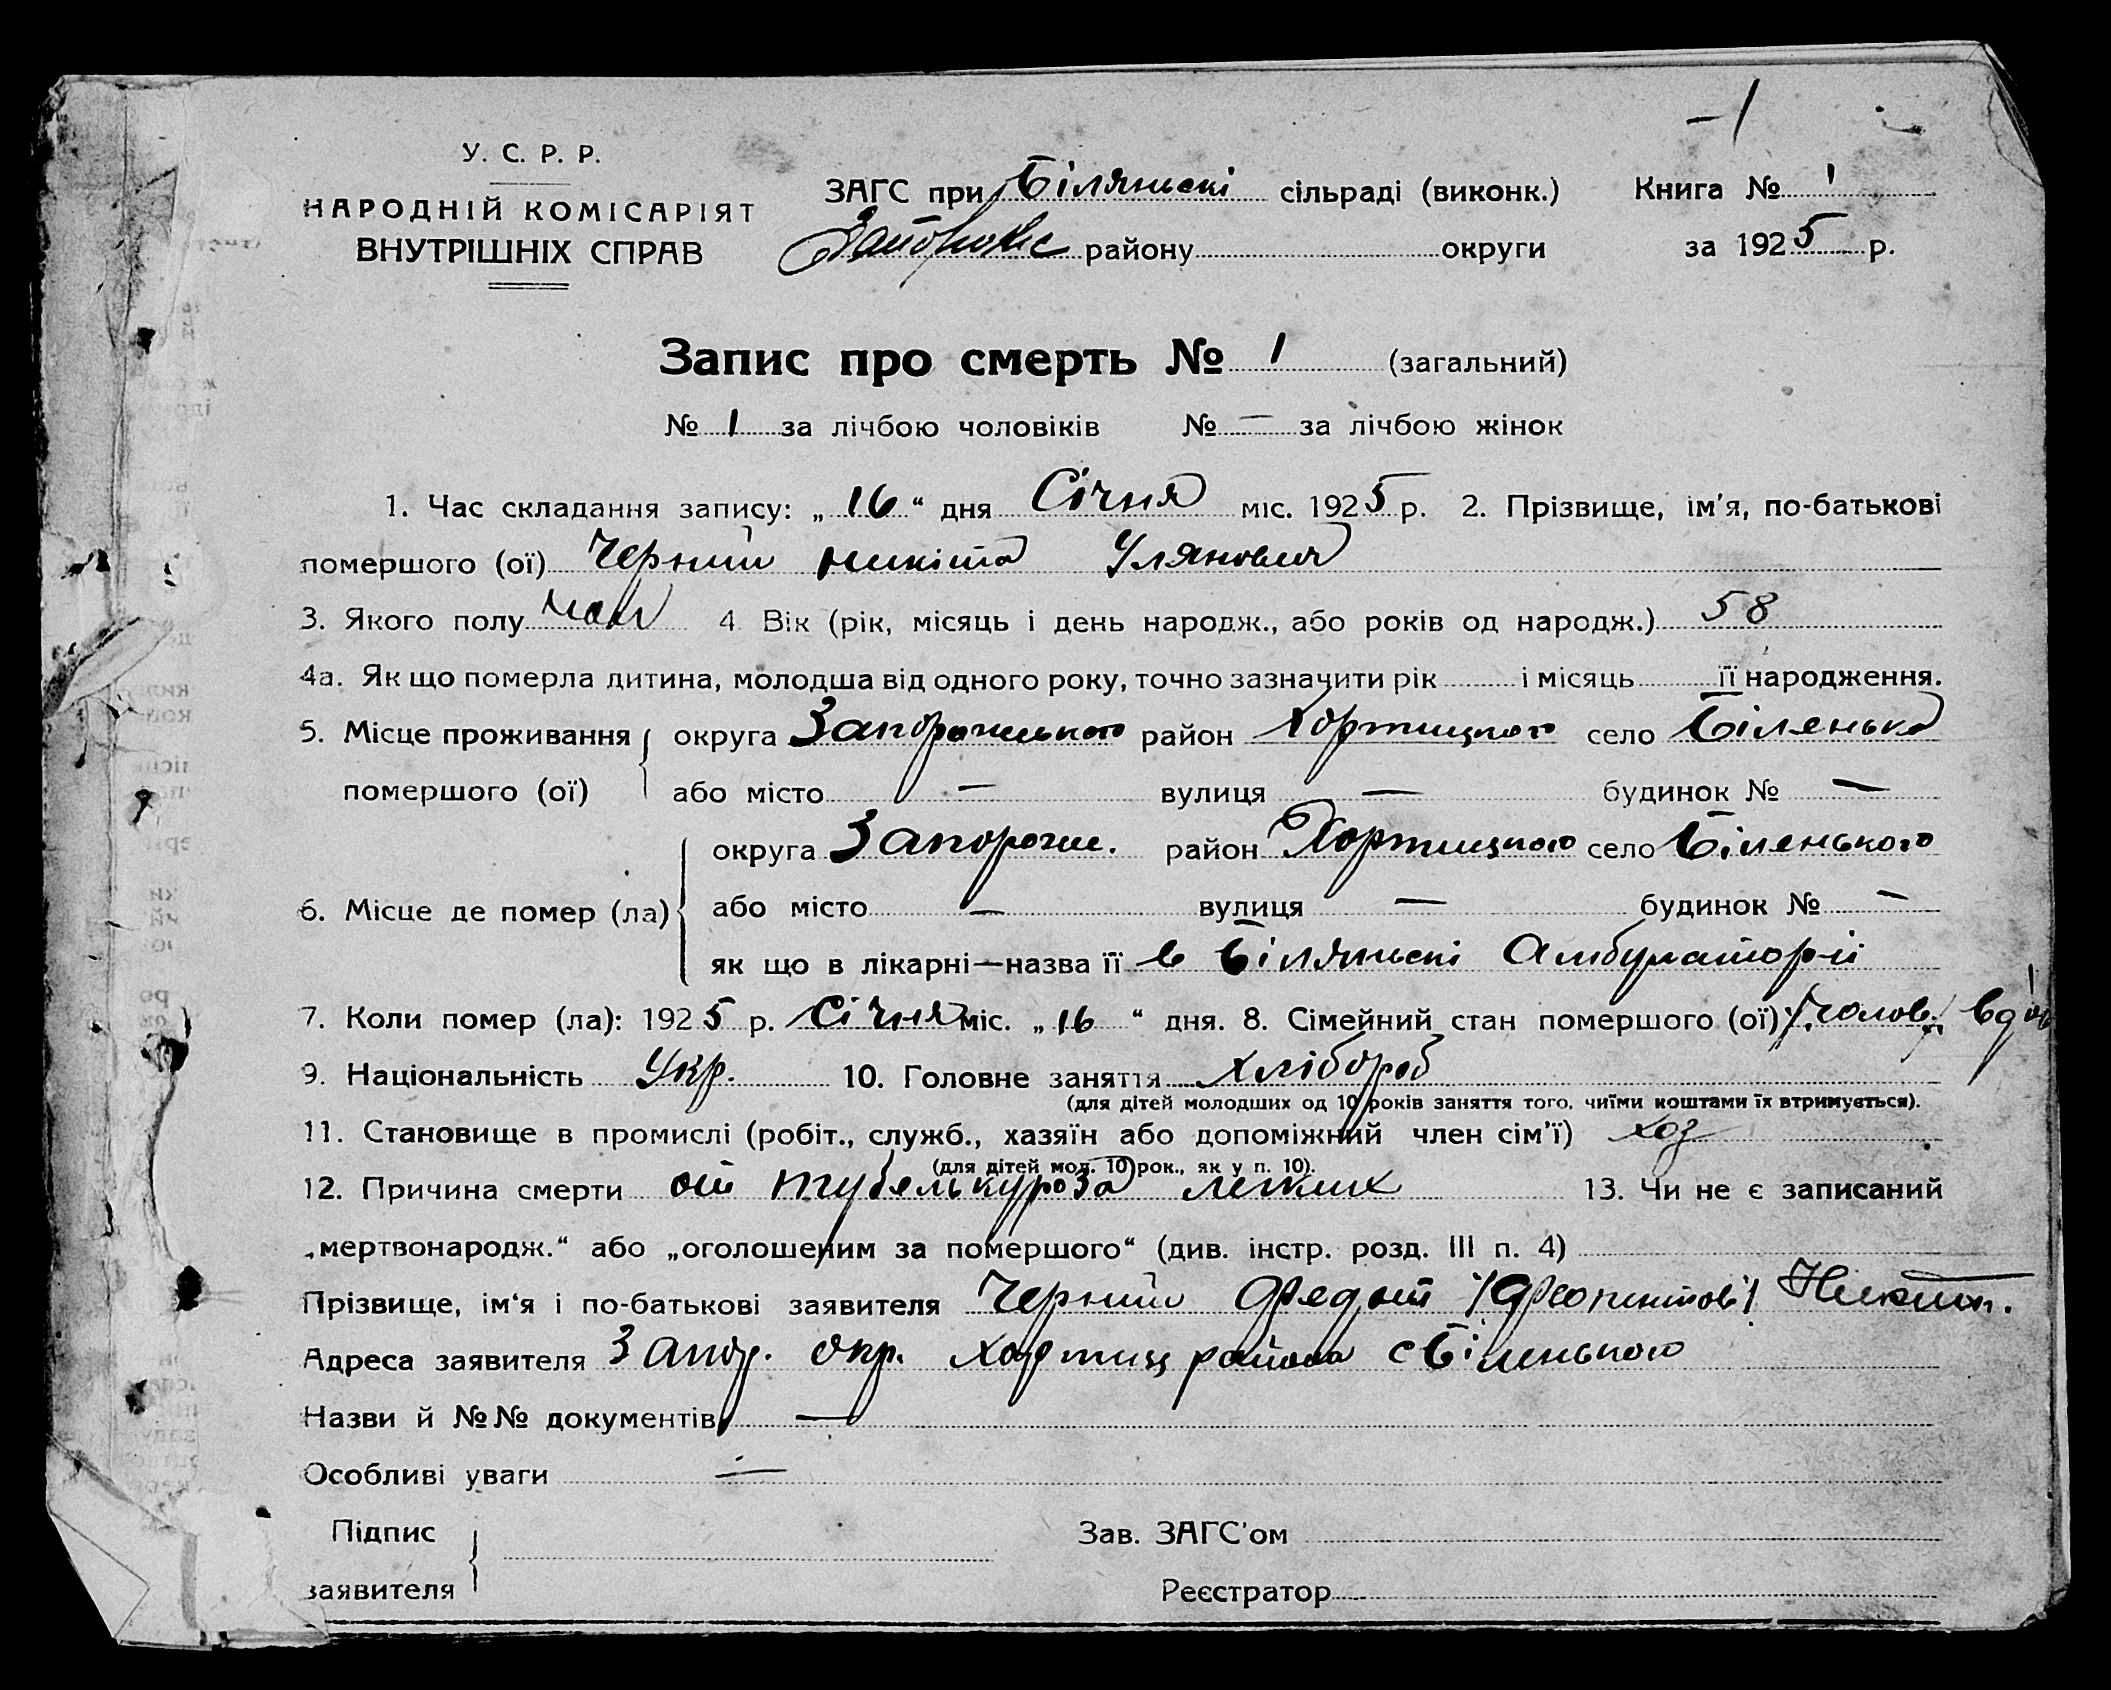 У. С. Р. Р.
НАРОДНІЙ КОМІСАРІЯТ
ВНУТРІШНІХ СПРАВ
ЗАГС при Біляньскі сільраді (виконк.) Книга № 1
району округи за 1925 р.
Запис про смерть № 1 (загальний)
№ 1 за лічбою чоловіків № — за лічбою жінок
1. Час складання запису: „16“ дня Січня міс. 1925 р. 2. Прізвище, ім'я, по-батькові
помершого (ої) Черний Никіта Улянович
3. Якого полу 4 Вік (рік, місяць і день народж., або років од народж.) 58
4а. Як що померла дитина, молодша від одного року, точно зазначити рік і місяць її народження.
5. Місце проживання округа Запорожського район Хортицкого село Біленька
помершого (ої) або місто — вулиця — будинок № —
округа Запорож. район Хортицкого село Біленького
6. Місце де помер (ла) або місто — вулиця — будинок № —
як що в лікарні—назва її в Біляньскі Амбулаторіі
7. Коли помер (ла): 1925 р. Січня міс. „16“ дня. 8. Сімейний стан помершого (ої)
9. Національність Укр. 10. Головне заняття хлібороб
(для дітей молодших од 10 років заняття того, чиїми коштами їх втримується).
11. Становище в промислі (робіт., служб., хазяїн або допоміжний член сім'ї) хоз
(для дітей мол. 10 рок., як у п. 10).
12. Причина смерти от тубелькуроза легких 13. Чи не є записаний
„мертвонародж.“ або „оголошеним за помершого“ (див. інстр. розд. III п. 4)
Прізвище, ім'я і по-батькові заявителя Черний Федот Никит.
Адреса заявителя Запор. окр. Хортиц района с Біленького
Назви й №№ документів —
Особливі уваги —
Підпис
заявителя
Зав. ЗАГС'ом
Реєстратор